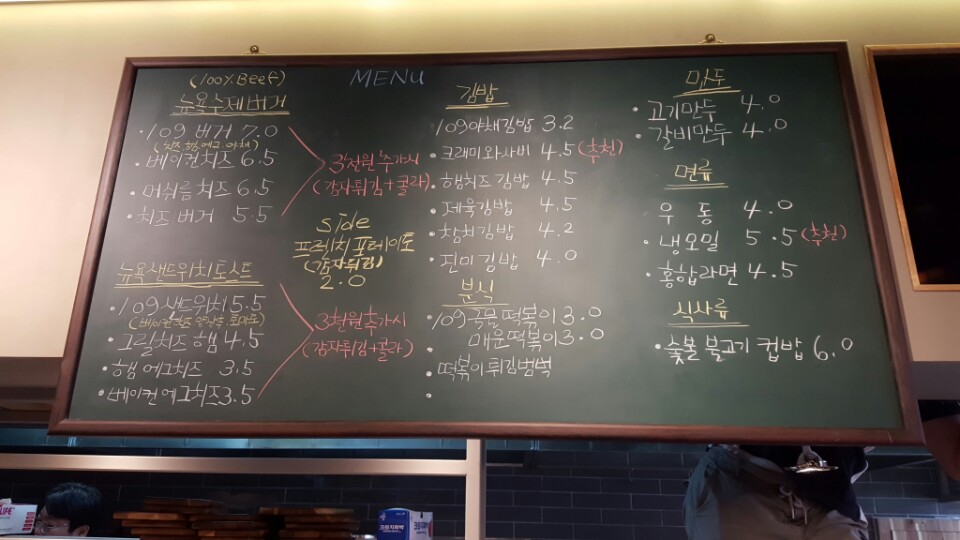 MENU
(100% Beef)
뉴욕수제버거
· 109 버거 7.0
(치즈, 햄, 에그, 야채)
· 베이컨치즈 6.5
· 머쉬룸 치즈 6.5
· 치즈 버거 5.5
3천원 추가시
(감자튀김+콜라)
side
프렌치 포테이토
(감자튀김)
2.0
뉴욕샌드위치토스트
· 109 샌드위치 5.5
· 그릴치즈 햄 4.5
· 햄 에그치즈 3.5
· 베이컨에그치즈 3.5
3천원 추가시
(감자튀김+콜라)
김밥
109야채김밥 3.2
· 크래미와사비 4.5 (추천)
· 햄치즈김밥 4.5
· 제육김밥 4.5
· 참치김밥 4.2
· 진미김밥 4.0
분식
· 109국물떡볶이 3.0
매운떡볶이 3.0
· 떡볶이튀김범벅
만두
· 고기만두 4.0
· 갈비만두 4.0
면류
우동 4.0
· 냉모밀 5.5 (추천)
· 홍합라면 4.5
식사류
· 숯불 불고기 컵밥 6.0